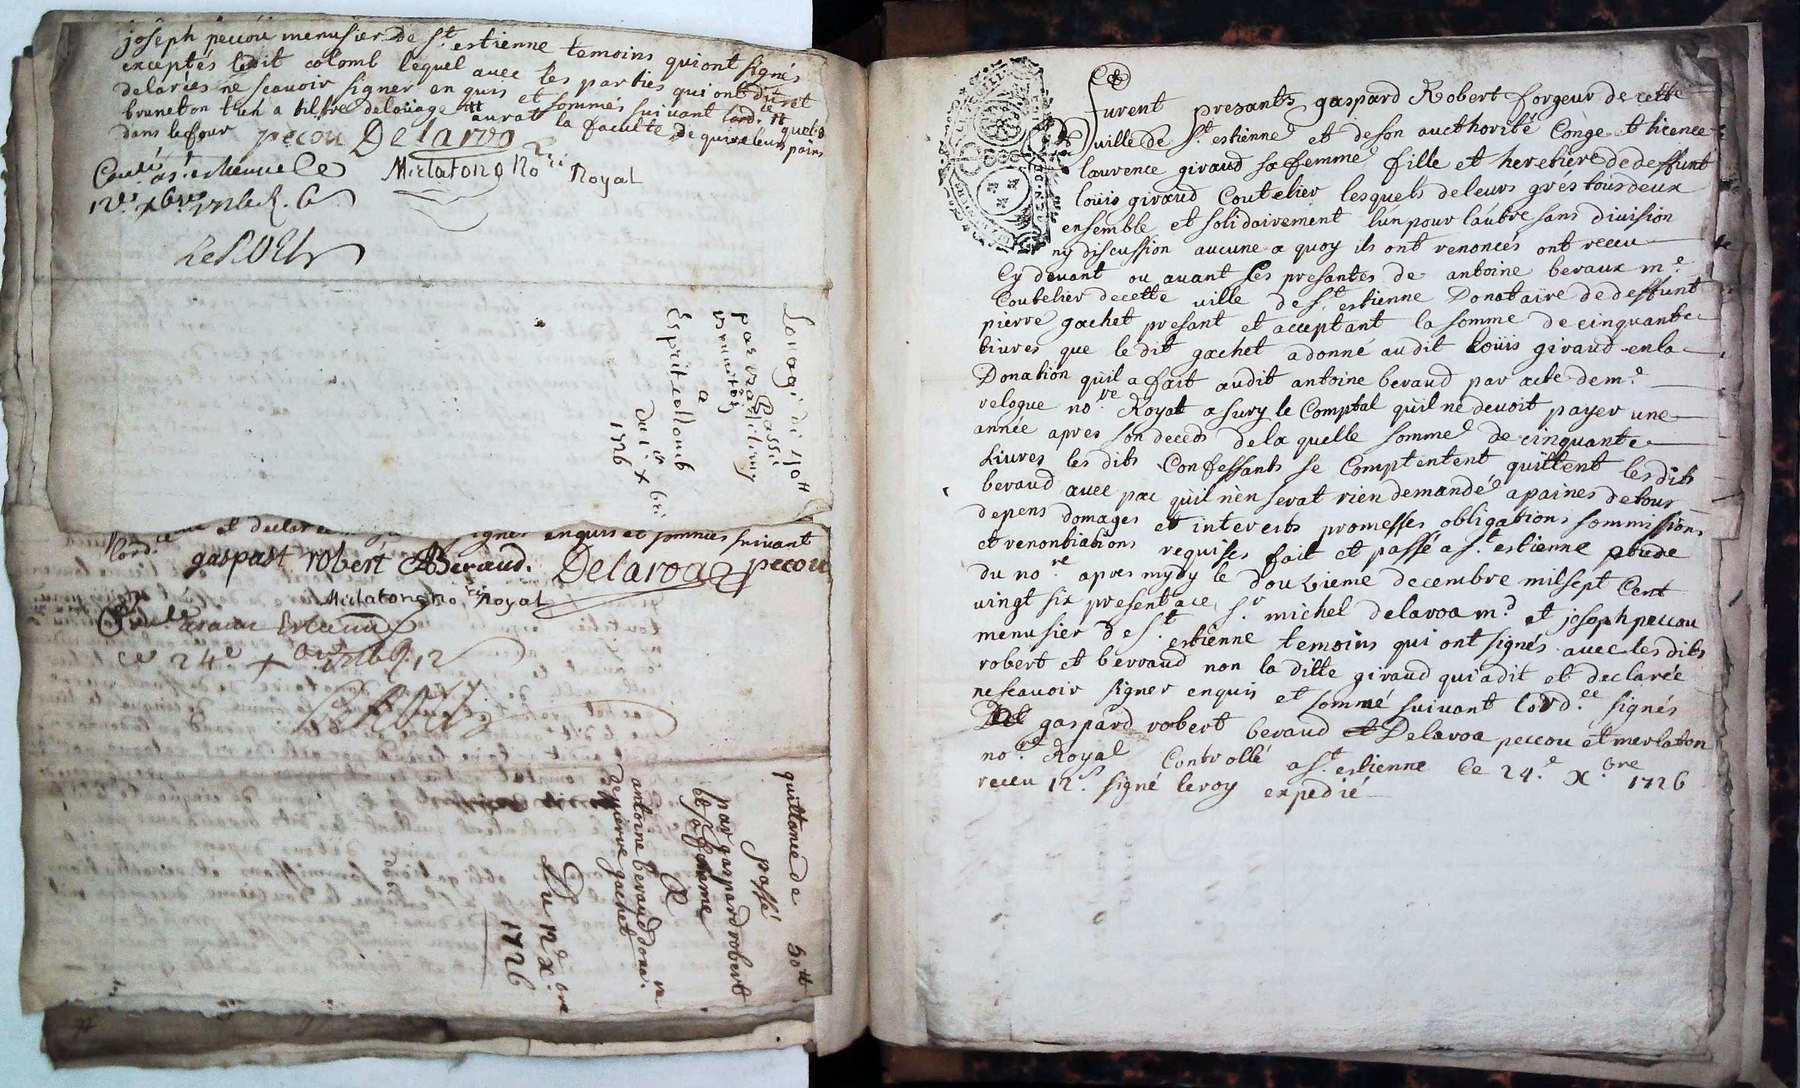 joseph peccou menusier de St. estienne temoins qui ont signés
exceptés ledit colomb lequel avec les parties qui ont
delarées ne scavoir signer enquis et sommés suivant lord.ce
bruneton
dans le four
pecou Delaroa
Merlatong No.re Royal
Lovagé di
passé
par
a
Esprit collomb
du 1.er xbre
1726
signer enquis et sommés suivant
lord.
gaspast robert ABéraud. Delaroa peccou
Merlatong No.re Royal
ce 24.e
quittance de 50tt
passé
par gaspard robert
et sa femme
A
antoine beraud dona.re
de pierre gachet
Du 12.e x.bre
1726
furent presants gaspard Robert forgeur de cette
ville de St. estienne et de son aucthorité Conge et licence
laurence giraud sa femme fille et heretière de deffunt
loüis giraud Coutelier lesquels de leurs grés tous deux
ensemble et solidairement lun pour lautre sans division
ny discussion aucune a quoy ils ont renoncés ont receu
Cy devant ou avant les presantes de antoine beraux m.e
Coutelier de cette ville de St. estienne Donataire de deffunt
pierre gachet presant et acceptant la somme de cinquante
livres que le dit gachet a donné au dit loüis giraud en la
Donation qu'il a fait audit antoine beraud par acte de m.e
relogue no.re Royal a Sury le Comptal qu'il ne devoit payer une
année apres son deceds de la quelle somme de cinquante
Livres les dits Confessants se Comptentent quittent les dits
beraud avec pac qu'il n'en serat rien demandé a paines de tous
depens domages et interests promesses obligations sommissions
et renontiations requises fait et passé a St. estienne etude
du no.re apres mydy le douzieme decembre mil sept Cent
vingt six present a ce, S.r michel delaroa m.d et joseph peccou
menusier de St. estienne temoins qui ont signés avec les dits
robert et berraud non la ditte giraud qui a dit et declarée
ne scavoir signer enquis et sommé suivant lord.ce signés
gaspard robert beraud Delaroa peccou et merlaton
no.re Royal Controllé a St. estienne le 24.e X.bre 1726
receu 12.s signé leroy expedié